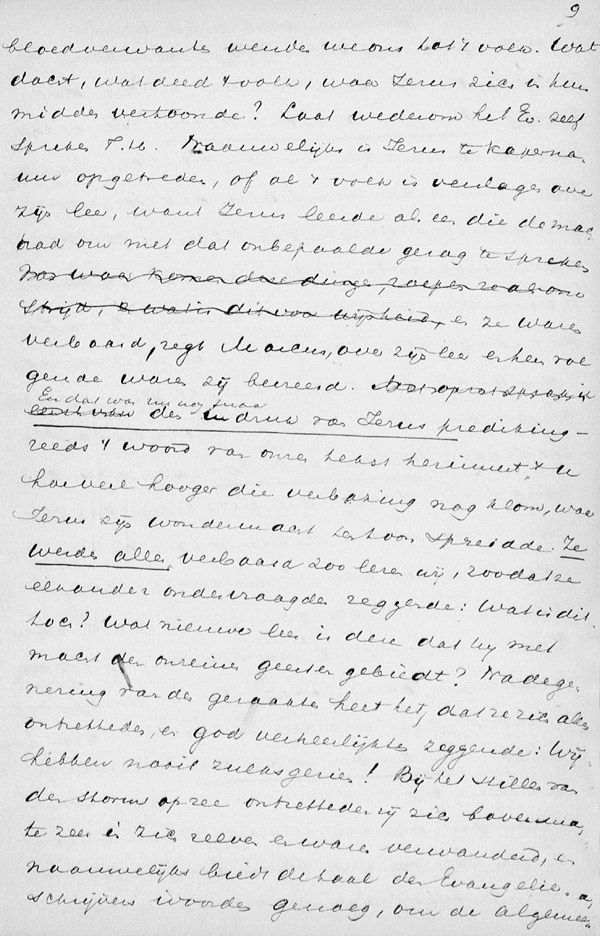 9
bloedverwanten wenden we ons tot 't volk. Wat
dacht, wat deed 't volk, waar Jezus zich in hun
midden vertoonde? Laat wederom het Ev. zelf
spreken T.H. Naauwelijks is Jezus te Kaperna-
um opgetreden, of al 't volk is verslagen over
zijn leer, want Jezus leerde als een die de macht
had om met dat onbepaalde gezag te spreken
Van waar komen deze dingen, roepen ze als om
strijd, en wat is dit voor wijsheid, en ze waren
verbaasd, zegt Marcus, over zijn leer en hen vol-
gende waren zij bevreesd.
En dat was nu nog maar
de indruk van Jezus prediking —
reeds 't woord van onze tekst herinnert 't u
hoeveel hooger die verbazing nog klom, waar
Jezus zijn wondermacht tentoon spreidde. Ze
werden allen verbaasd zoo lezen wij, zoodat ze
elkander ondervraagden zeggende: Wat is dit
toch? Wat nieuwe leer is deze dat hij met
macht den onreinen geesten gebiedt? Na de ge-
nezing van den geraakte heet het, dat ze zich allen
ontzetteden, en god verheerlijkten zeggende: Wij
hebben nooit zulks gezien! Bij het stillen van
den storm op zee ontzetteden zij zich bovenma-
te zeer in zich zelven en waren verwonderd, en
naauwelijks biedt de taal der Evangelie-
schrijvers woorden genoeg, om de algemee-